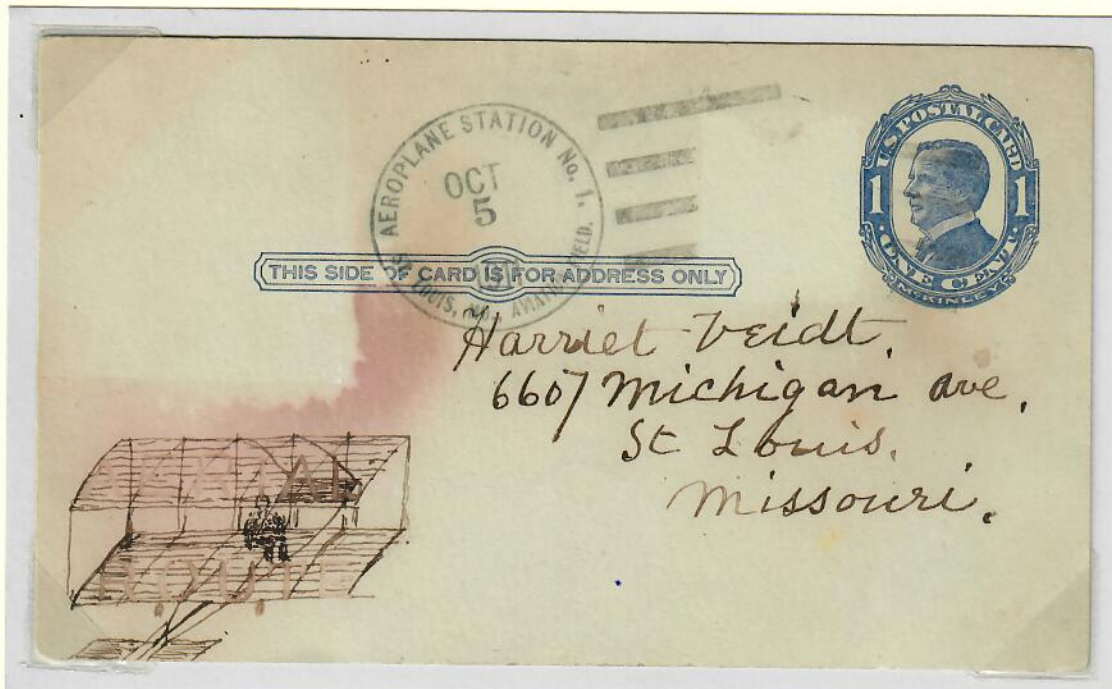 AEROPLANE STATION No. 1.
OCT
5
1911
ST. LOUIS, MO., AVIATION FIELD.
U.S. POSTAL CARD
1 1
ONE CENT
McKINLEY
THIS SIDE OF CARD IS FOR ADDRESS ONLY
Harriet Veidt.
6607 Michigan ave.
St Louis.
Missouri.
AERIAL
ROUTE